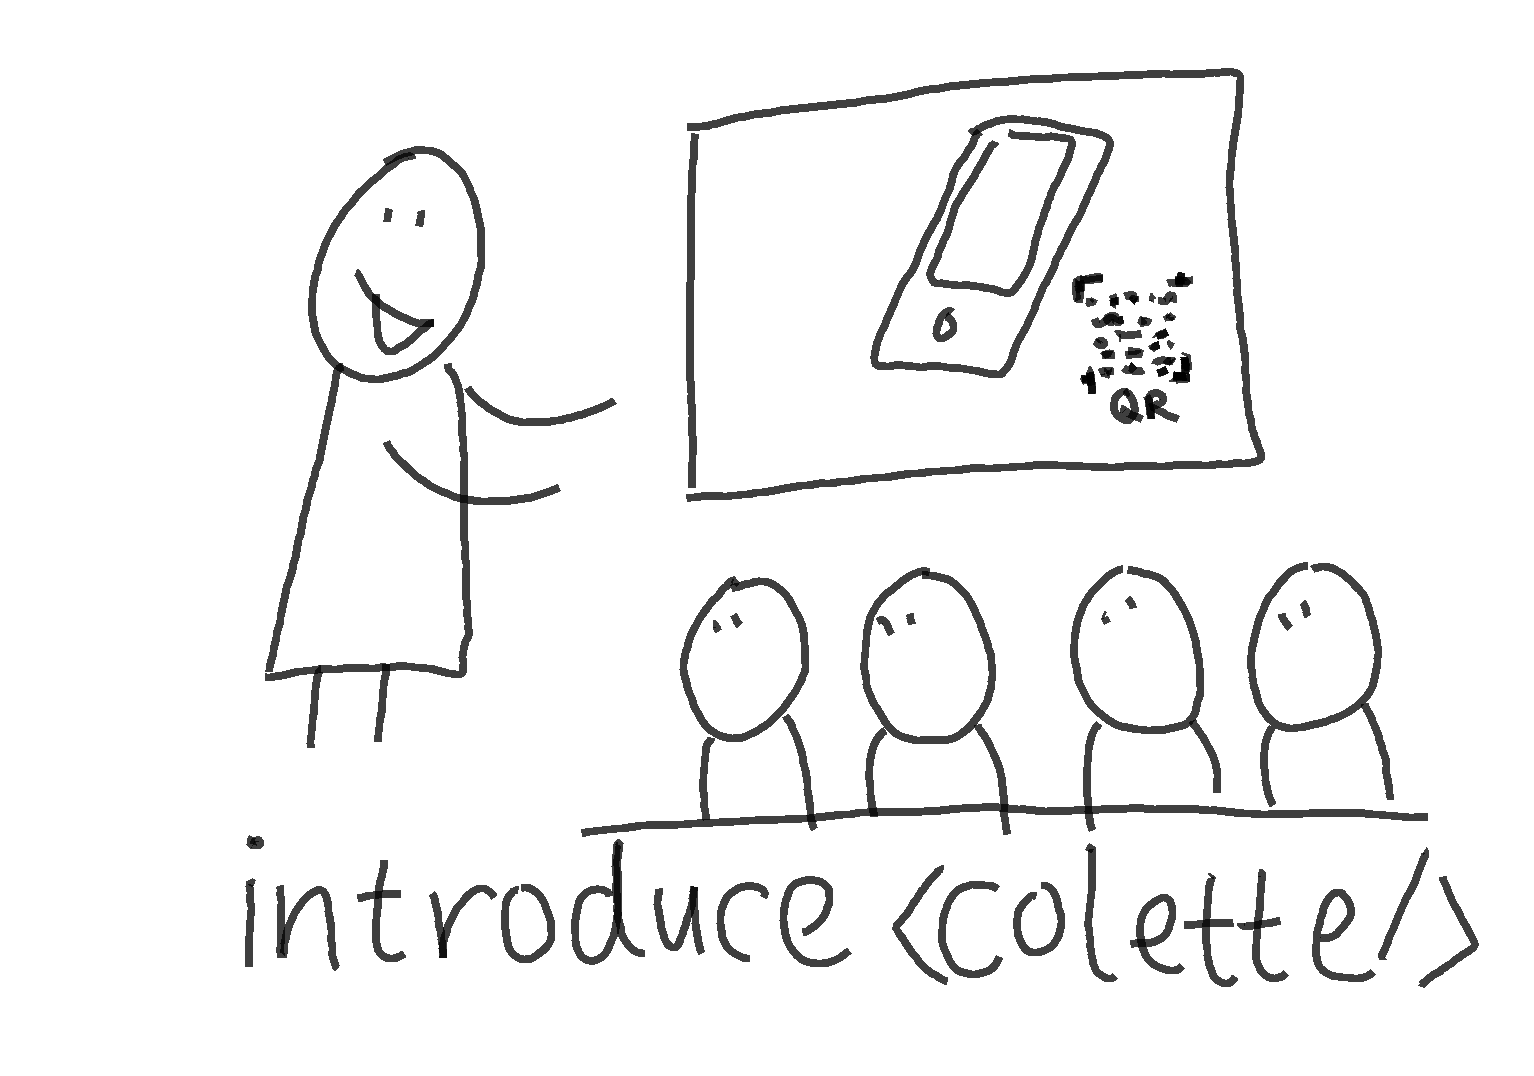 QR
introduce <colette/>